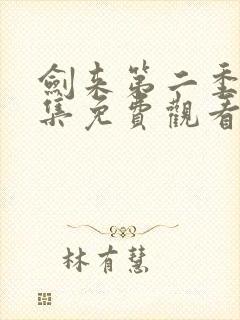 劍來第二季
集免費觀看
林有慧